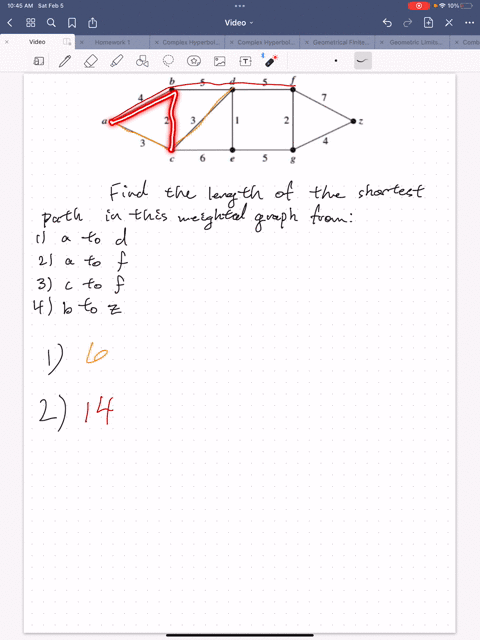 10:45 AM Sat Feb 5
10%
Video
Video
Homework 1
Complex Hyperbol...
Complex Hyperbol...
Geometrical Finite...
Geometric Limits...
b 5 d 5 f
4 7
a 2 3 1 2 z
3 4
c 6 e 5 g
Find the length of the shortest
path in this weighted graph from:
1) a to d
2) a to f
3) c to f
4) b to z
1) 6
2) 14